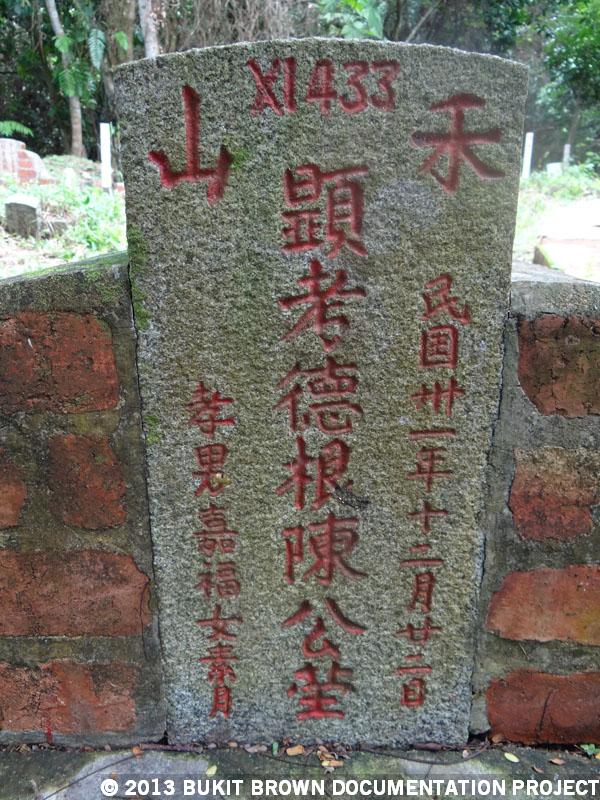 XI 433
禾山
民国卅一年十二月廿二日
顯考德根陳公
孝男嘉福女素月
© 2013 BUKIT BROWN DOCUMENTATION PROJECT